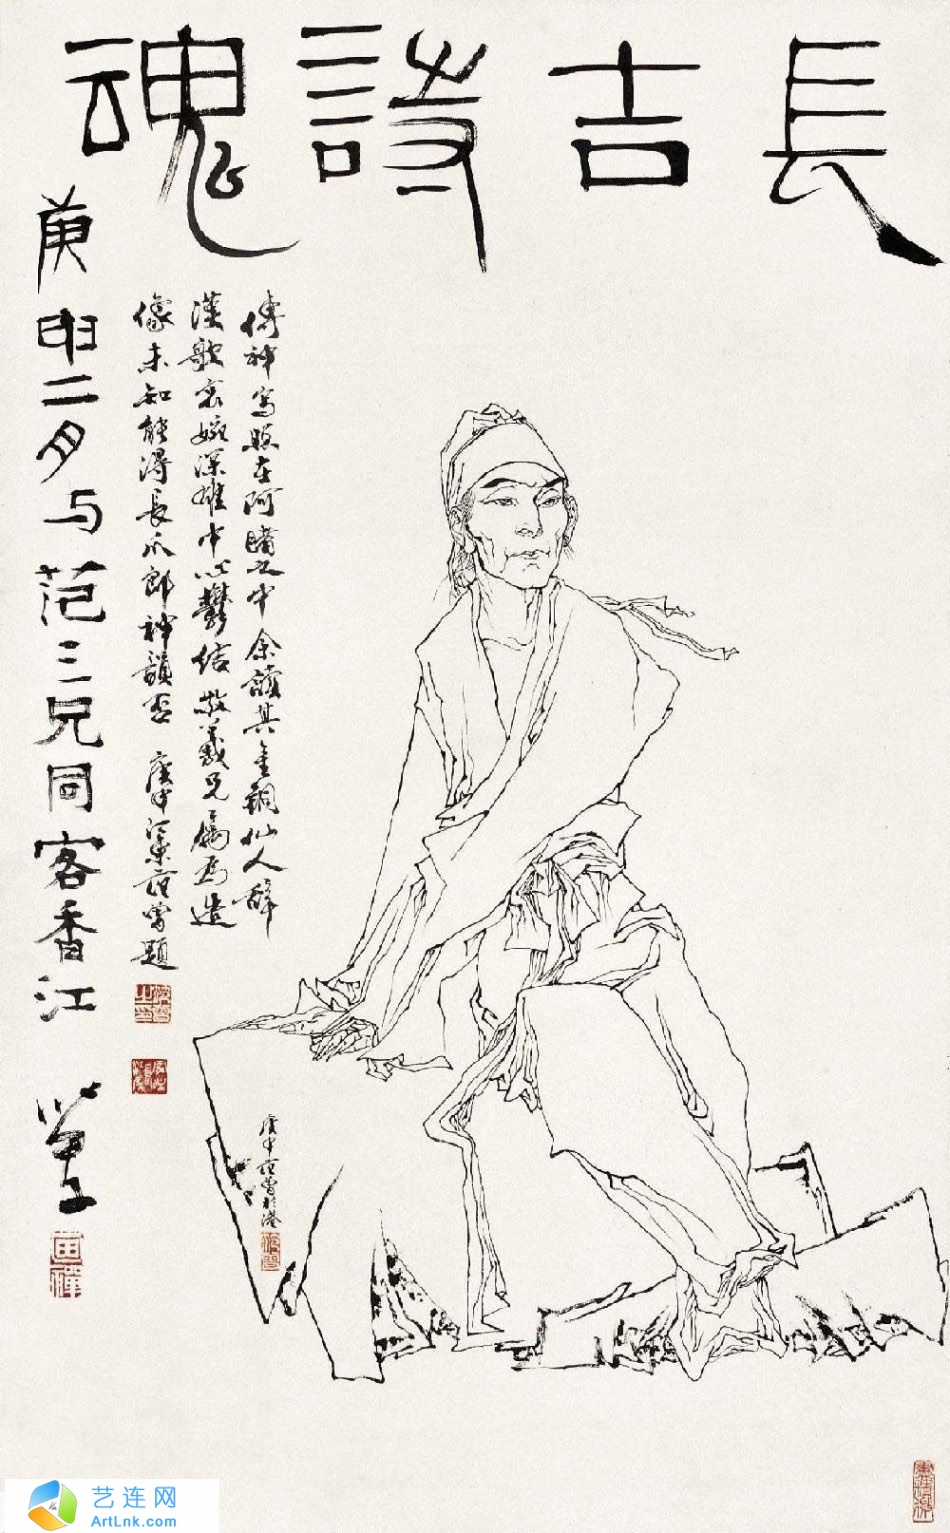 長吉詩魂
傳神寫照在阿睹之中余讀其金銅仙人辭
漢歌哀婉深雄中心鬱结敬羲兄属为造
像未知能得長爪郎神韻否 庚申江東范曾題
庚申二月与范三兄同客香江
庚申范曾於港
艺连网
ArtLnk.com